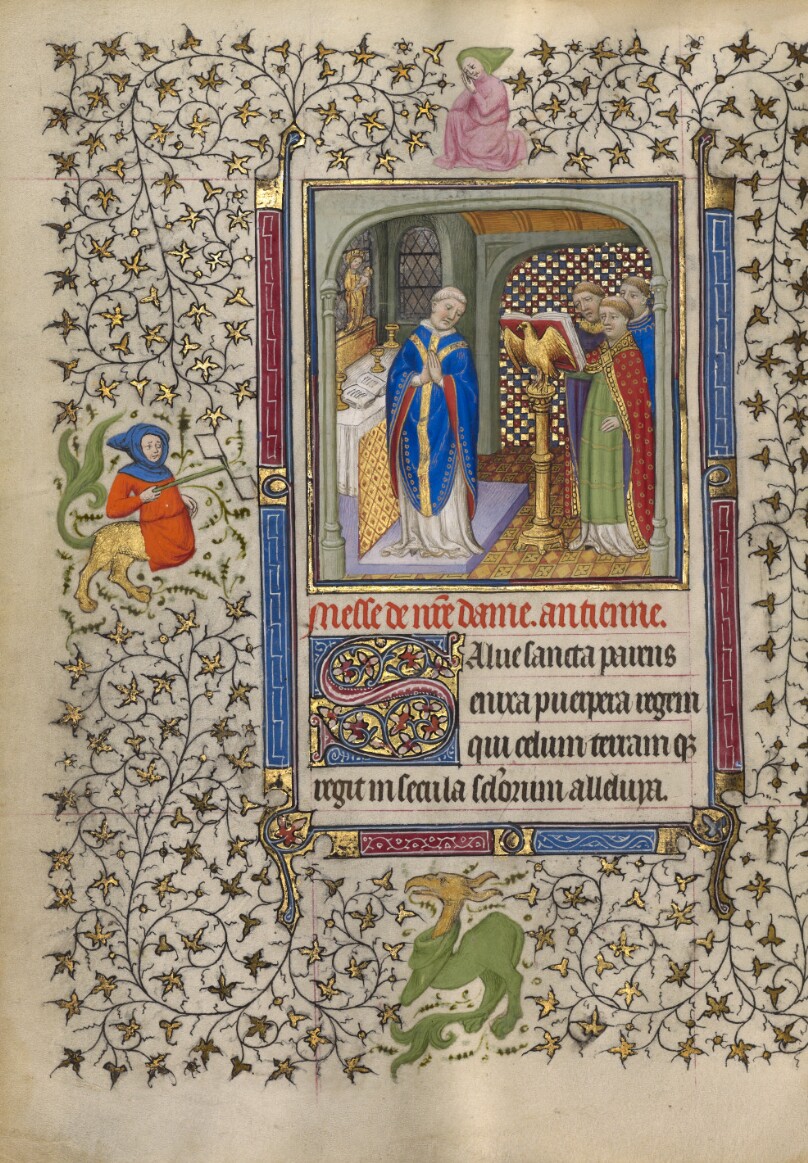 Messe de nr̃e dame. antienne.
Salue sancta parens
enixa puerpera regem
qui celum terram qꝫ
regit in secula sclõrum alleluya.